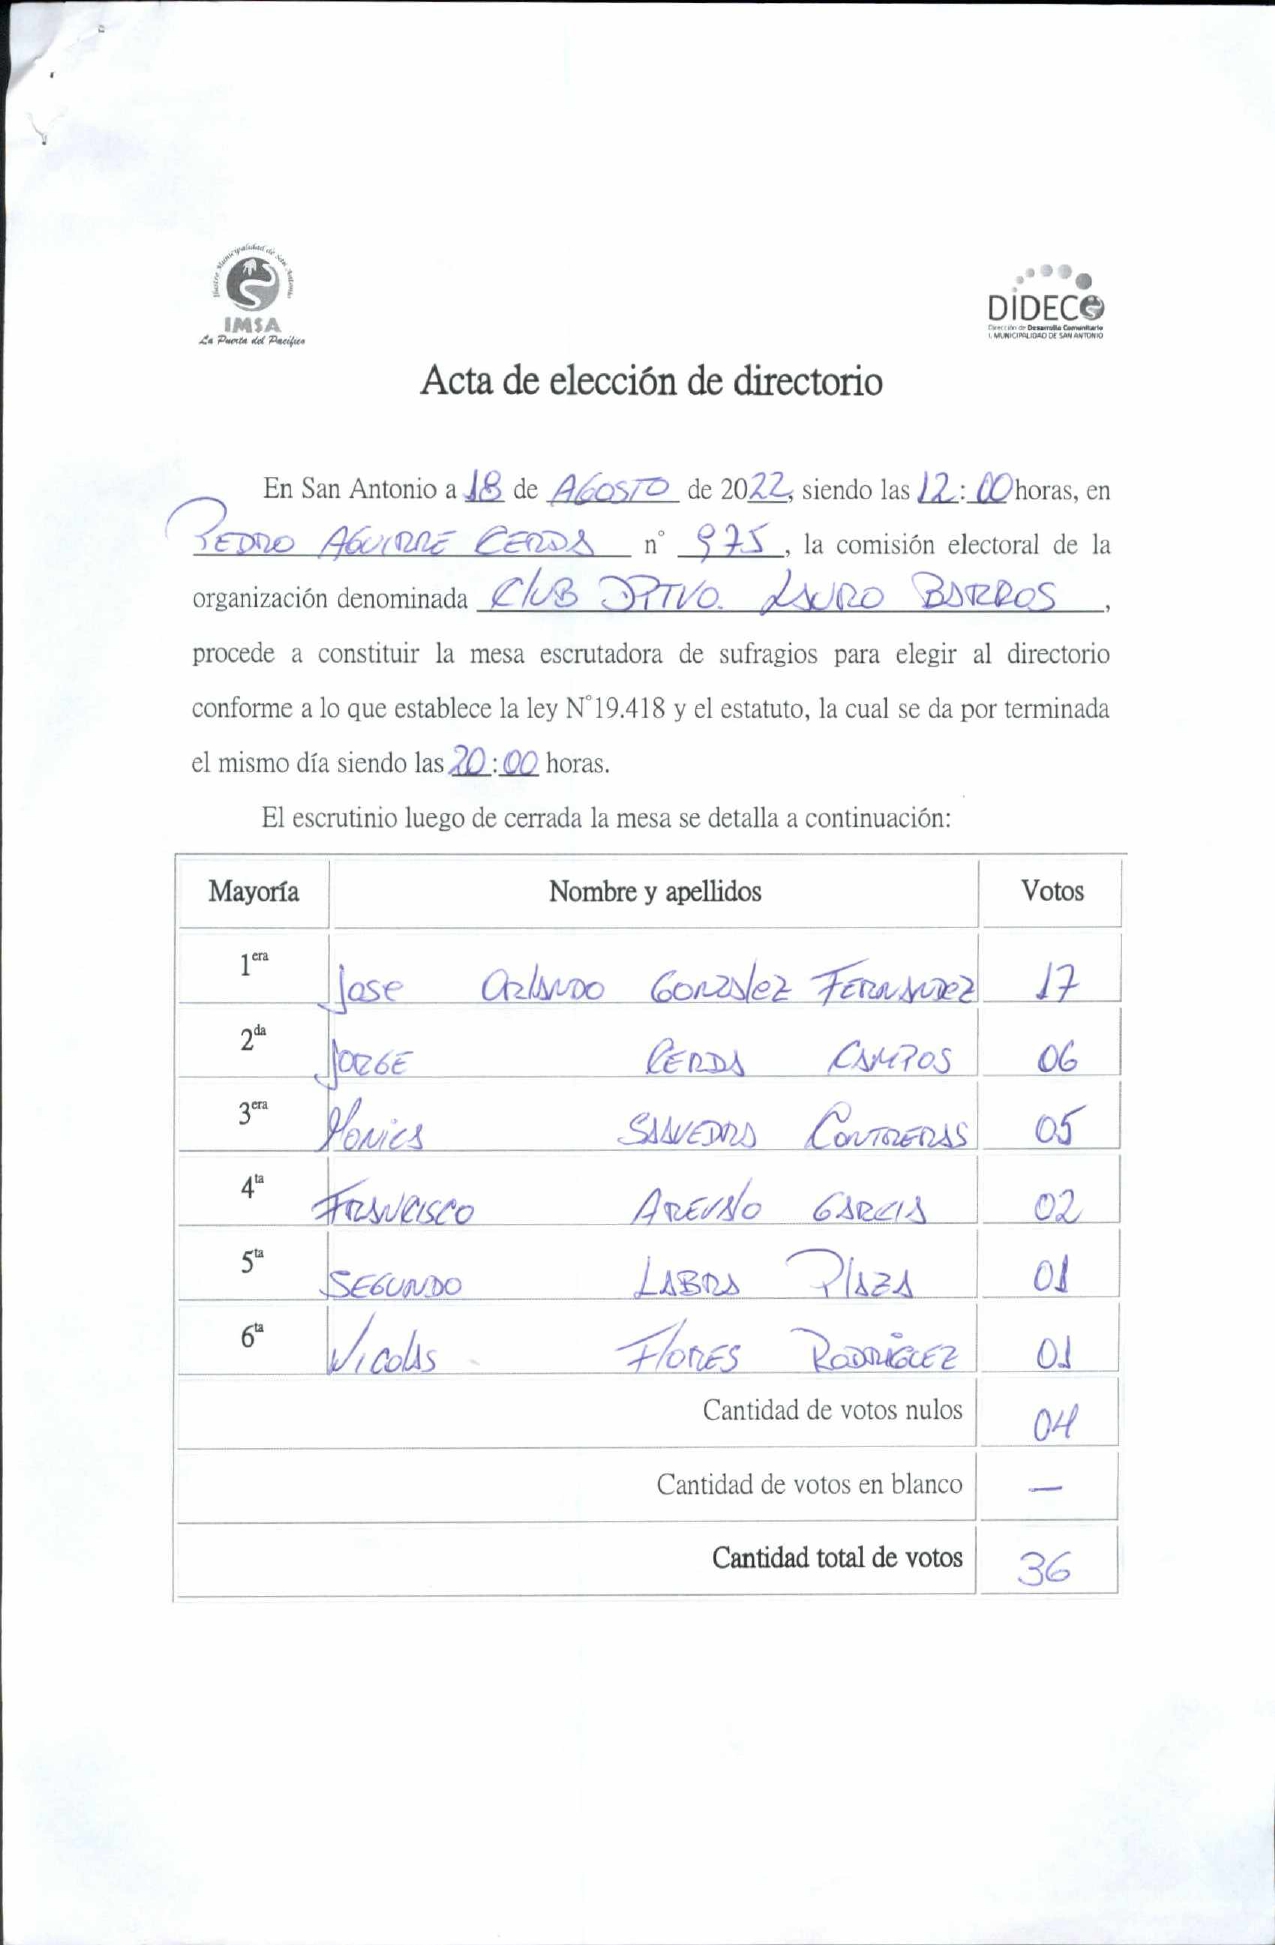 Ilustre Municipalidad de San Antonio
IMSA
La Puerta del Pacífico
DIDECO
Dirección de Desarrollo Comunitario
I. MUNICIPALIDAD DE SAN ANTONIO
Acta de elección de directorio
En San Antonio a 18 de AGOSTO de 2022, siendo las 12:00 horas, en
PEDRO AGUIRRE CERDA n° 975, la comisión electoral de la
organización denominada CLUB DPTVO. LAURO BARROS,
procede a constituir la mesa escrutadora de sufragios para elegir al directorio
conforme a lo que establece la ley N°19.418 y el estatuto, la cual se da por terminada
el mismo día siendo las 20:00 horas.
El escrutinio luego de cerrada la mesa se detalla a continuación:
Mayoría Nombre y apellidos Votos
1era Jose Orlando Gonzalez Fernandez 17
2da JORGE CERDA CAMPOS 06
3era MONICA SAAVEDRA CONTRERAS 05
4ta FRANCISCO AREVALO GARCIA 02
5ta SEGUNDO LABRA PLAZA 01
6ta NICOLAS FLORES RODRIGUEZ 01
Cantidad de votos nulos 04
Cantidad de votos en blanco —
Cantidad total de votos 36